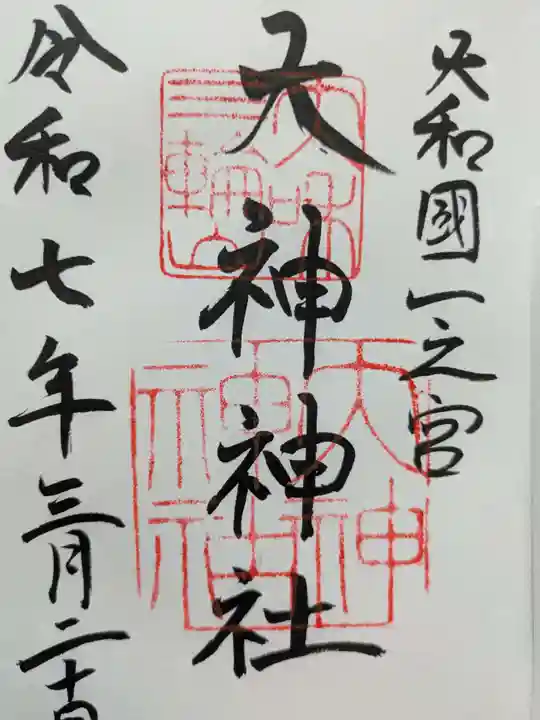 大和國一之宮
大神神社
令和七年三月二十日
三輪山
大和
大神
神社